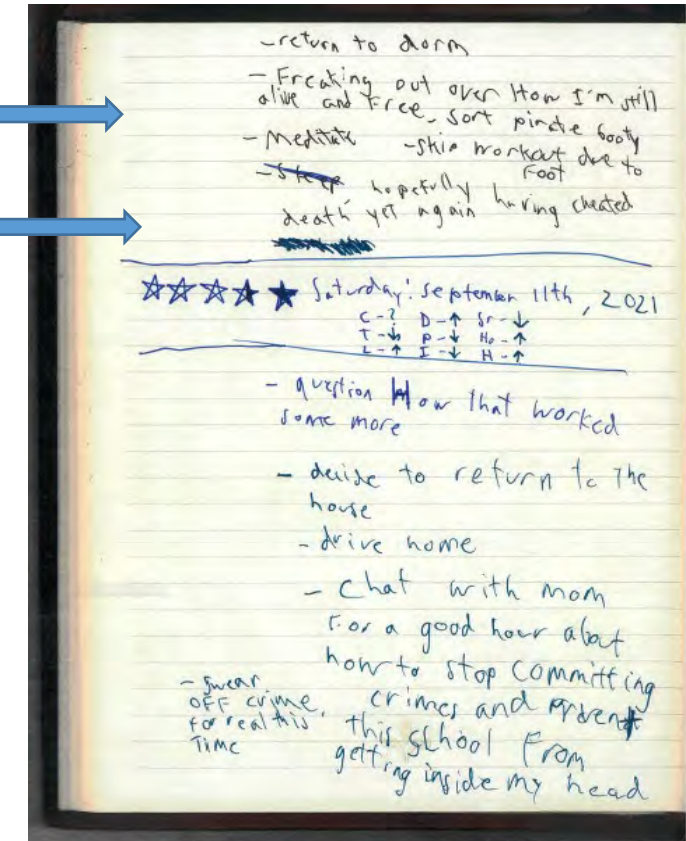 - return to dorm
- Freaking out over How I'm still
alive and Free, sort pirate booty
- Meditate - skip workout due to
Foot
- Sleep hopefully having cheated
death yet again
Saturday: September 11th, 2021
C - ? D - ↑ Sr - ↓
T - ↓ P - ↓ Ho - ↑
L - ↑ I - ↓ H - ↑
- question How that worked
some more
- decide to return to the
house
- drive home
- Chat with mom
For a good hour about
how to stop committing
crimes and prevent
this school From
getting inside my head
- swear
OFF crime,
for real this
Time